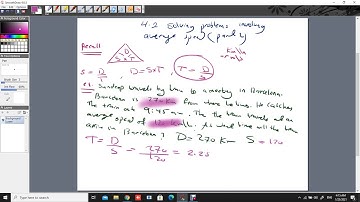 4.2 Solving problems involving
average speed (part 4)
Recall
D
S T
Km/h
S = D/S , D = S×T , T = D/S
e1. Sandeep travels by train to a meeting in Barcelona.
Barcelona is 270km from where he lives. He catches
the train at 9:45 am. The train travels at an
average speed of 120 km/h. At what time will the train
arrive in Barcelona? D = 270 Km S = 120
T = D/S = 270/120 = 2.25